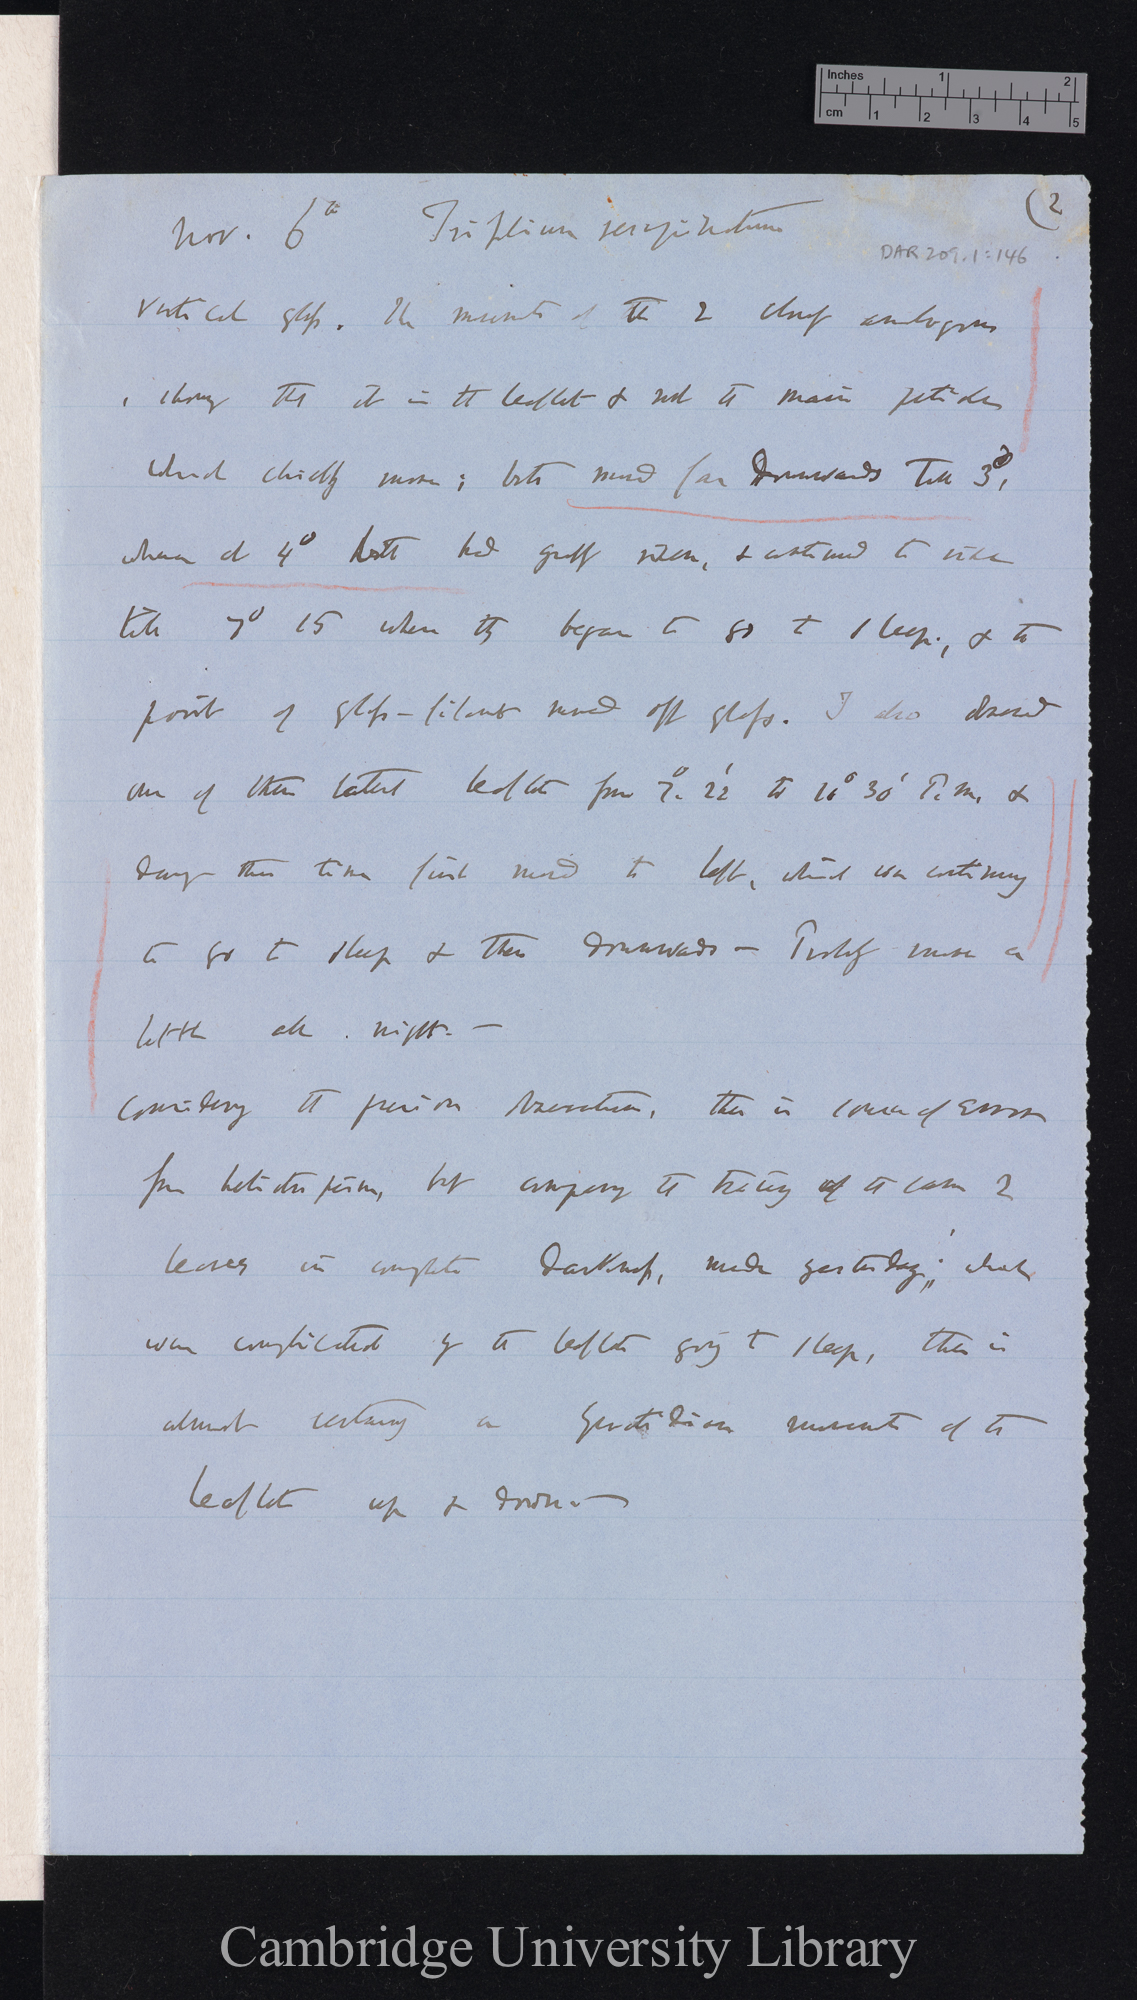 Inches 1 2
cm 1 2 3 4 5
(2
Nov. 6th Trifolium resupinatum
DAR 209.1:146
vertical glass. The movements of the 2 closely analogous
, showing that it is the leaflet & not the main petioles
which chiefly move; both moved far Downwards till 3°,
when at 4° both had greatly risen, & continued to rise
till 7° 15 when they began to go to sleep., & the
point of glass-filament moved off glass. I also observed
one of these lateral leaflets from 7° 22' to 10° 30' P.m. &
during this time first moved to left, which was continuing
to go to sleep & then downwards — Probably move a
little all night. —
Considering the previous observations, there is source of Error
from heliotropism, but comparing the tracing of the same 2
leaves in complete Darkness, made yesterday; which
was complicated by the leaflets going to sleep, there is
almost certainly a quotidian movement of the
leaflets up & down —
Cambridge University Library